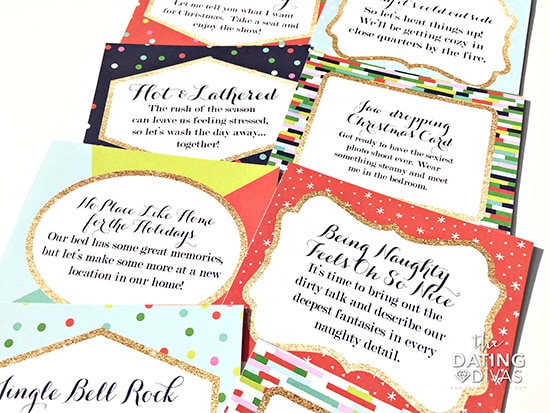 Let me tell you what I want
for Christmas. Take a seat and
enjoy the show!
it's cold outside
So let's heat things up!
We'll be getting cozy in
close quarters by the fire.
Hot & Lathered
The rush of the season
can leave us feeling stressed,
so let's wash the day away...
together!
Jaw-dropping
Christmas Card
Get ready to have the sexiest
photo shoot ever. Wear
something steamy and meet
me in the bedroom.
No Place Like Home
for the Holidays
Our bed has some great memories,
but let's make some more at a new
location in our home!
Being Naughty
Feels Oh So Nice
It's time to bring out the
dirty talk and describe our
deepest fantasies in every
naughty detail.
Jingle Bell Rock
the
DATING
DIVAS